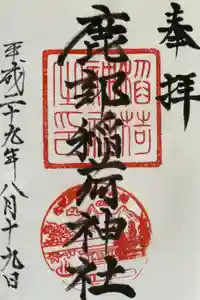 奉拝
鹿部稲荷神社
平成二十九年八月十九日
稲荷
神社
之印